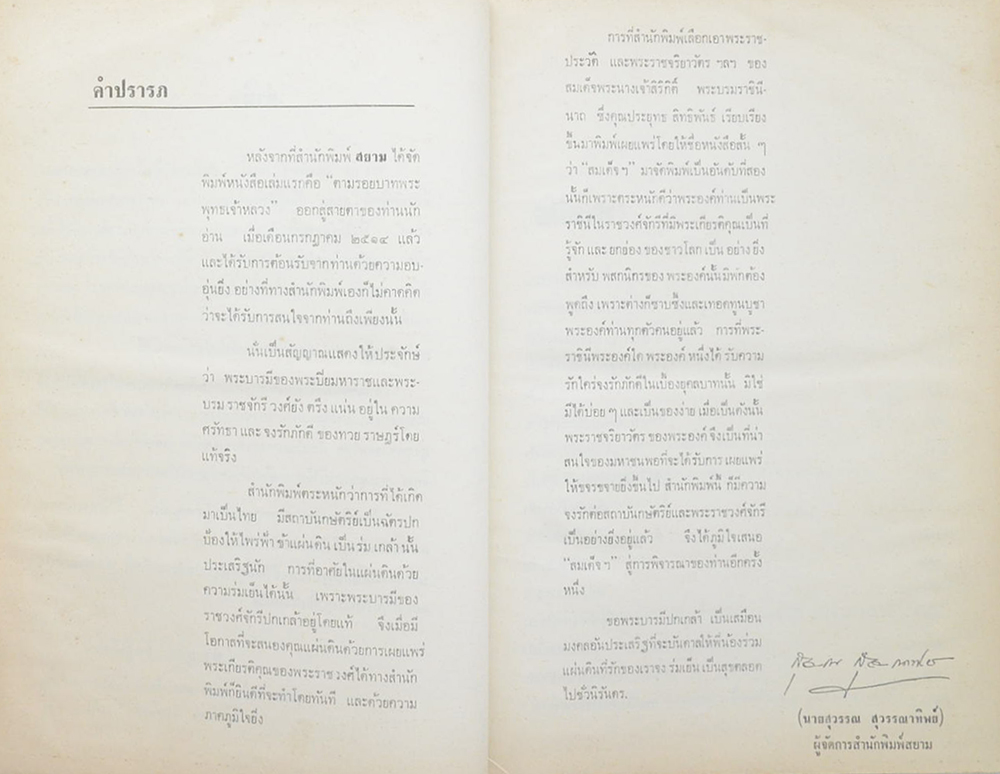 คำปรารภ
หลังจากที่สำนักพิมพ์ สยาม ได้จัด
พิมพ์หนังสือเล่มแรกคือ "ตามรอยบาทพระ
พุทธเจ้าหลวง" ออกสู่สายตาของท่านนัก
อ่าน เมื่อเดือนกรกฎาคม ๒๕๑๔ แล้ว
และได้รับการต้อนรับจากท่านด้วยความอบ-
อุ่นยิ่ง อย่างที่ทางสำนักพิมพ์เองก็ไม่คาดคิด
ว่าจะได้รับการสนใจจากท่านถึงเพียงนั้น
นั่นเป็นสัญญาณแสดงให้ประจักษ์
ว่า พระบารมีของพระปิยมหาราชและพระ-
บรม ราชจักรี วงศ์ยัง ตรึง แน่น อยู่ใน ความ
ศรัทธา และ จงรักภักดี ของทวย ราษฎร์โดย
แท้จริง
สำนักพิมพ์ตระหนักว่าการที่ได้เกิด
มาเป็นไทย มีสถาบันกษัตริย์เป็นฉัตรปก
ป้องให้ไพร่ฟ้า ข้าแผ่นดิน เป็น ร่ม เกล้า นั้น
ประเสริฐนัก การที่อาศัยในแผ่นดินด้วย
ความร่มเย็นได้นั้น เพราะพระบารมีของ
ราชวงศ์จักรีปกเกล้าอยู่โดยแท้ จึงเมื่อมี
โอกาสที่จะสนองคุณแผ่นดินด้วยการเผยแพร่
พระเกียรติคุณของพระราช วงศ์ได้ทางสำนัก
พิมพ์ก็ยินดีที่จะทำโดยทันที และด้วยความ
ภาคภูมิใจยิ่ง
การที่สำนักพิมพ์เลือกเอาพระราช-
ประวัติ และพระราชจริยาวัตร ฯลฯ ของ
สมเด็จพระนางเจ้าสิริกิติ์ พระบรมราชินี-
นาถ ซึ่งคุณประยุทธ สิทธิพันธ์ เรียบเรียง
ขึ้นมาพิมพ์เผยแพร่โดยให้ชื่อหนังสือสั้น ๆ
ว่า "สมเด็จฯ" มาจัดพิมพ์เป็นอันดับที่สอง
นั้นก็เพราะตระหนักดีว่าพระองค์ท่านเป็นพระ
ราชินีในราชวงศ์จักรีที่มีพระเกียรติคุณเป็นที่
รู้จัก และ ยกย่อง ของชาวโลก เป็น อย่าง ยิ่ง
สำหรับ พสกนิกรของ พระองค์นั้นมิพักต้อง
พูดถึง เพราะต่างก็ซาบซึ้งและเทอดทูนบูชา
พระองค์ท่านทุกตัวคนอยู่แล้ว การที่พระ-
ราชินีพระองค์ใด พระองค์ หนึ่งได้ รับความ
รักใคร่จงรักภักดีในเบื้องยุคลบาทนั้น มิใช่
มีได้บ่อย ๆ และเป็นของง่าย เมื่อเป็นดังนั้น
พระราชจริยาวัตร ของพระองค์ จึงเป็นที่น่า
สนใจของมหาชนพอที่จะได้รับการ เผยแพร่
ให้ขจรขจายยิ่งขึ้นไป สำนักพิมพ์นี้ ก็มีความ
จงรักต่อสถาบันกษัตริย์และพระราชวงศ์จักรี
เป็นอย่างยิ่งอยู่แล้ว จึงได้ภูมิใจเสนอ
"สมเด็จฯ" สู่การพิจารณาของท่านอีกครั้ง
หนึ่ง
ขอพระบารมีปกเกล้า เป็นเสมือน
มงคลอันประเสริฐที่จะบันดาลให้พี่น้องร่วม
แผ่นดินที่รักของเราจง ร่มเย็น เป็นสุขตลอด
ไปชั่วนิรันดร.
(นายสุวรรณ สุวรรณาทิพย์)
ผู้จัดการสำนักพิมพ์สยาม